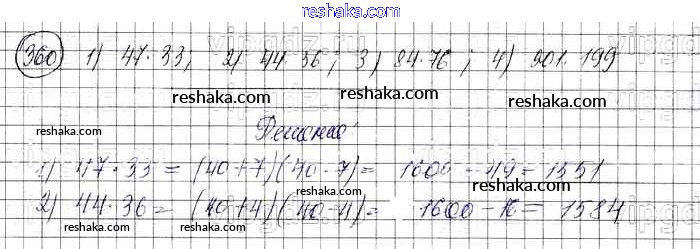 reshaka.com
360 1) 47·33; 2) 44·36; 3) 84·76; 4) 201·199
reshaka.com reshaka.com reshaka.com
Решение
reshaka.com reshaka.com
1) 47·33 = (40+7)(40-7) = 1600 - 49 = 1551
reshaka.com
2) 44·36 = (40+4)(40-4) = 1600 - 16 = 1584